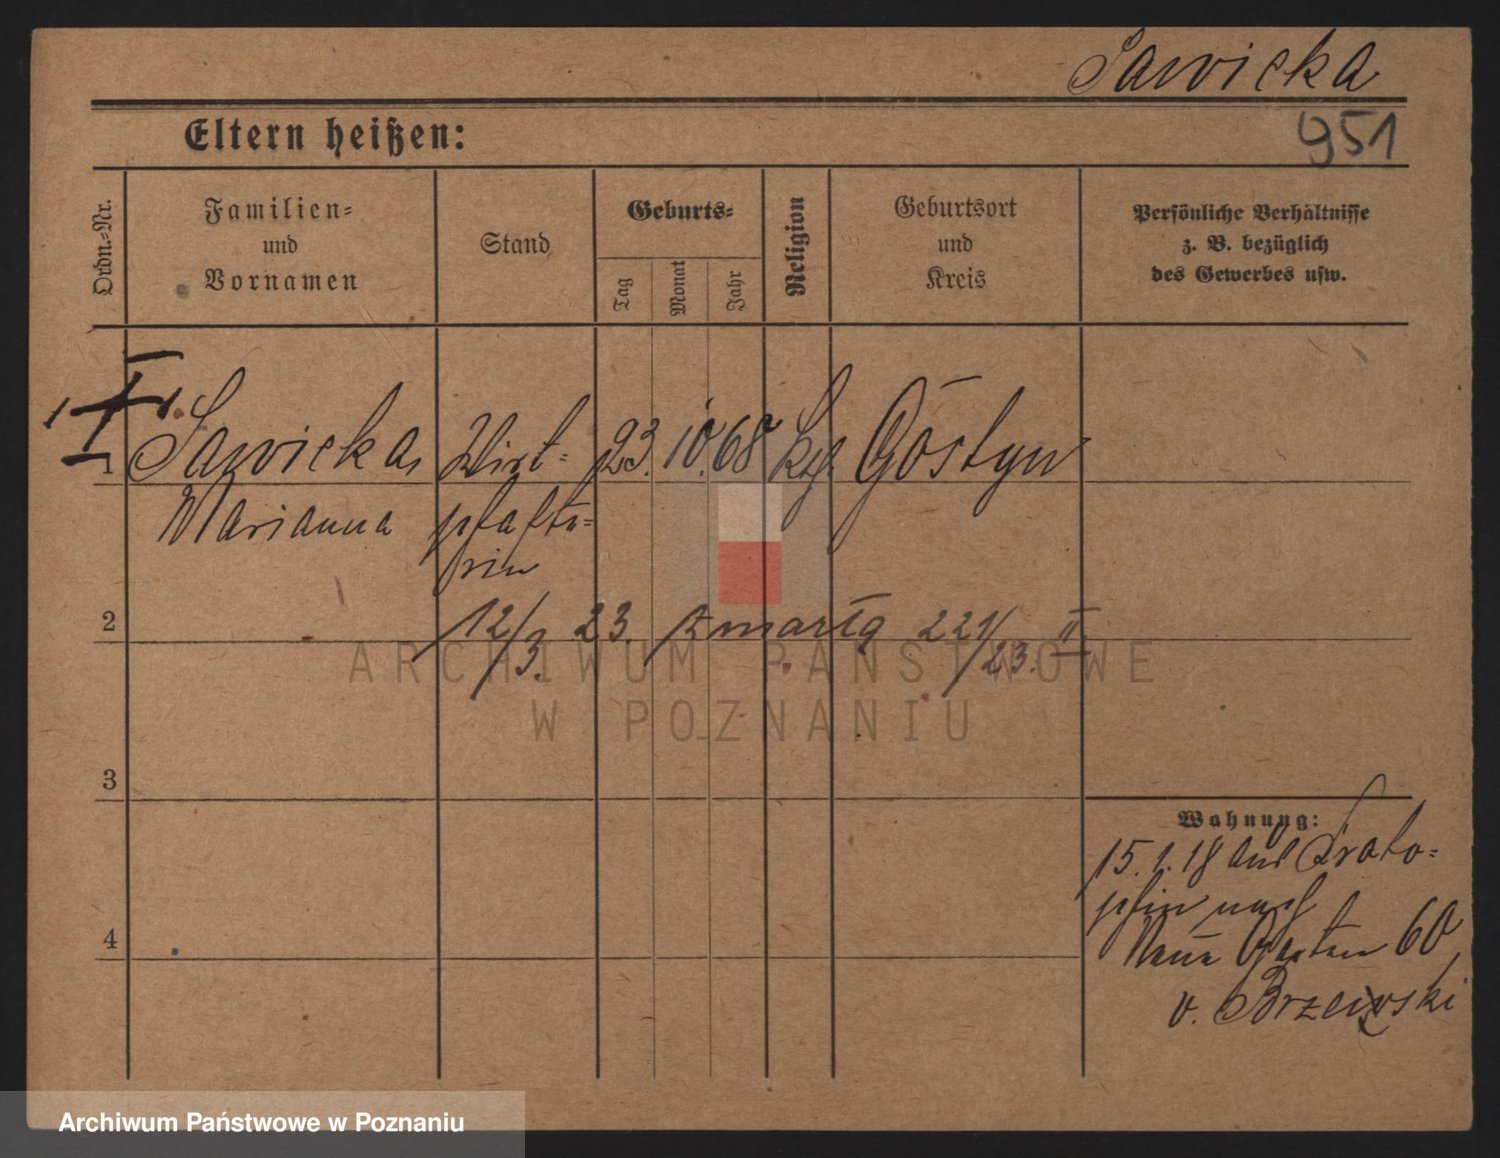 Sawicka
951
Eltern heißen:
Ordn.=Nr.
Familien=
und
Vornamen
Stand
Geburts=
Tag
Monat
Jahr
Religion
Geburtsort
und
Kreis
Persönliche Verhältnisse
z. B. bezüglich
des Gewerbes usw.
1 Sawicka, Wirt= 23. 10. 68 kath. Góstyn
Marianna schafte=
rin
2
12/3. 23. zmarła 221/23. II
ARCHIWUM PAŃSTWOWE
W POZNANIU
3
Wohnung:
15.1.18 aus
schin nach
4
Neue Garten 60
v. Brzeski
Archiwum Państwowe w Poznaniu